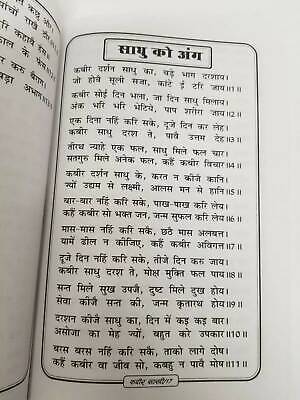 साधु को अंग
कबीर दर्शन साधु का, बड़े भाग दरशाय।
जो होवै सूली सजा, कांटे ई टरि जाय॥1॥
कबीर सोई दिन भला, जा दिन साधु मिलाय।
अंक भरि भरि भेटिये, पाप शरीर जाय॥2॥
एक दिना नहिं करि सकै, दूजे दिन कर लेह।
कबीर साधु दरश ते, पावै उत्तम देह॥3॥
तीरथ न्हाये एक फल, साधु मिले फल चार।
सतगुरु मिले अनेक फल, कहैं कबीर विचार॥4॥
कबीर दर्शन साधु के, करत न कीजै कानि।
ज्यों उद्यम से लक्ष्मी, आलस मन से हानि॥5॥
बार-बार नहिं करि सकै, पाख-पाख करि लेय।
कहैं कबीर सो भक्त जन, जन्म सुफल करि लेय॥6॥
मास-मास नहिं करि सकै, छठे मास अलबत्त।
यामें ढील न कीजिए, कहैं कबीर अविगत्त॥7॥
दूजे दिन नहिं करि सकै, तीजे दिन करू जाय।
कबीर साधु दरश ते, मोक्ष मुक्ति फल पाय॥8॥
सन्त मिले सुख उपजै, दुष्ट मिले दुख होय।
सेवा कीजै सन्त की, जन्म कृतारथ होय॥9॥
दरशन कीजै साधु का, दिन में कइ कइ बार।
असोजा का मेह ज्यों, बहुत करे उपकार॥10॥
बरस बरस नहिं करि सकै, ताको लागे दोष।
कहैं कबीर वा जीव सो, कबहु न पावै मोष॥11॥
कबीर साखी/17